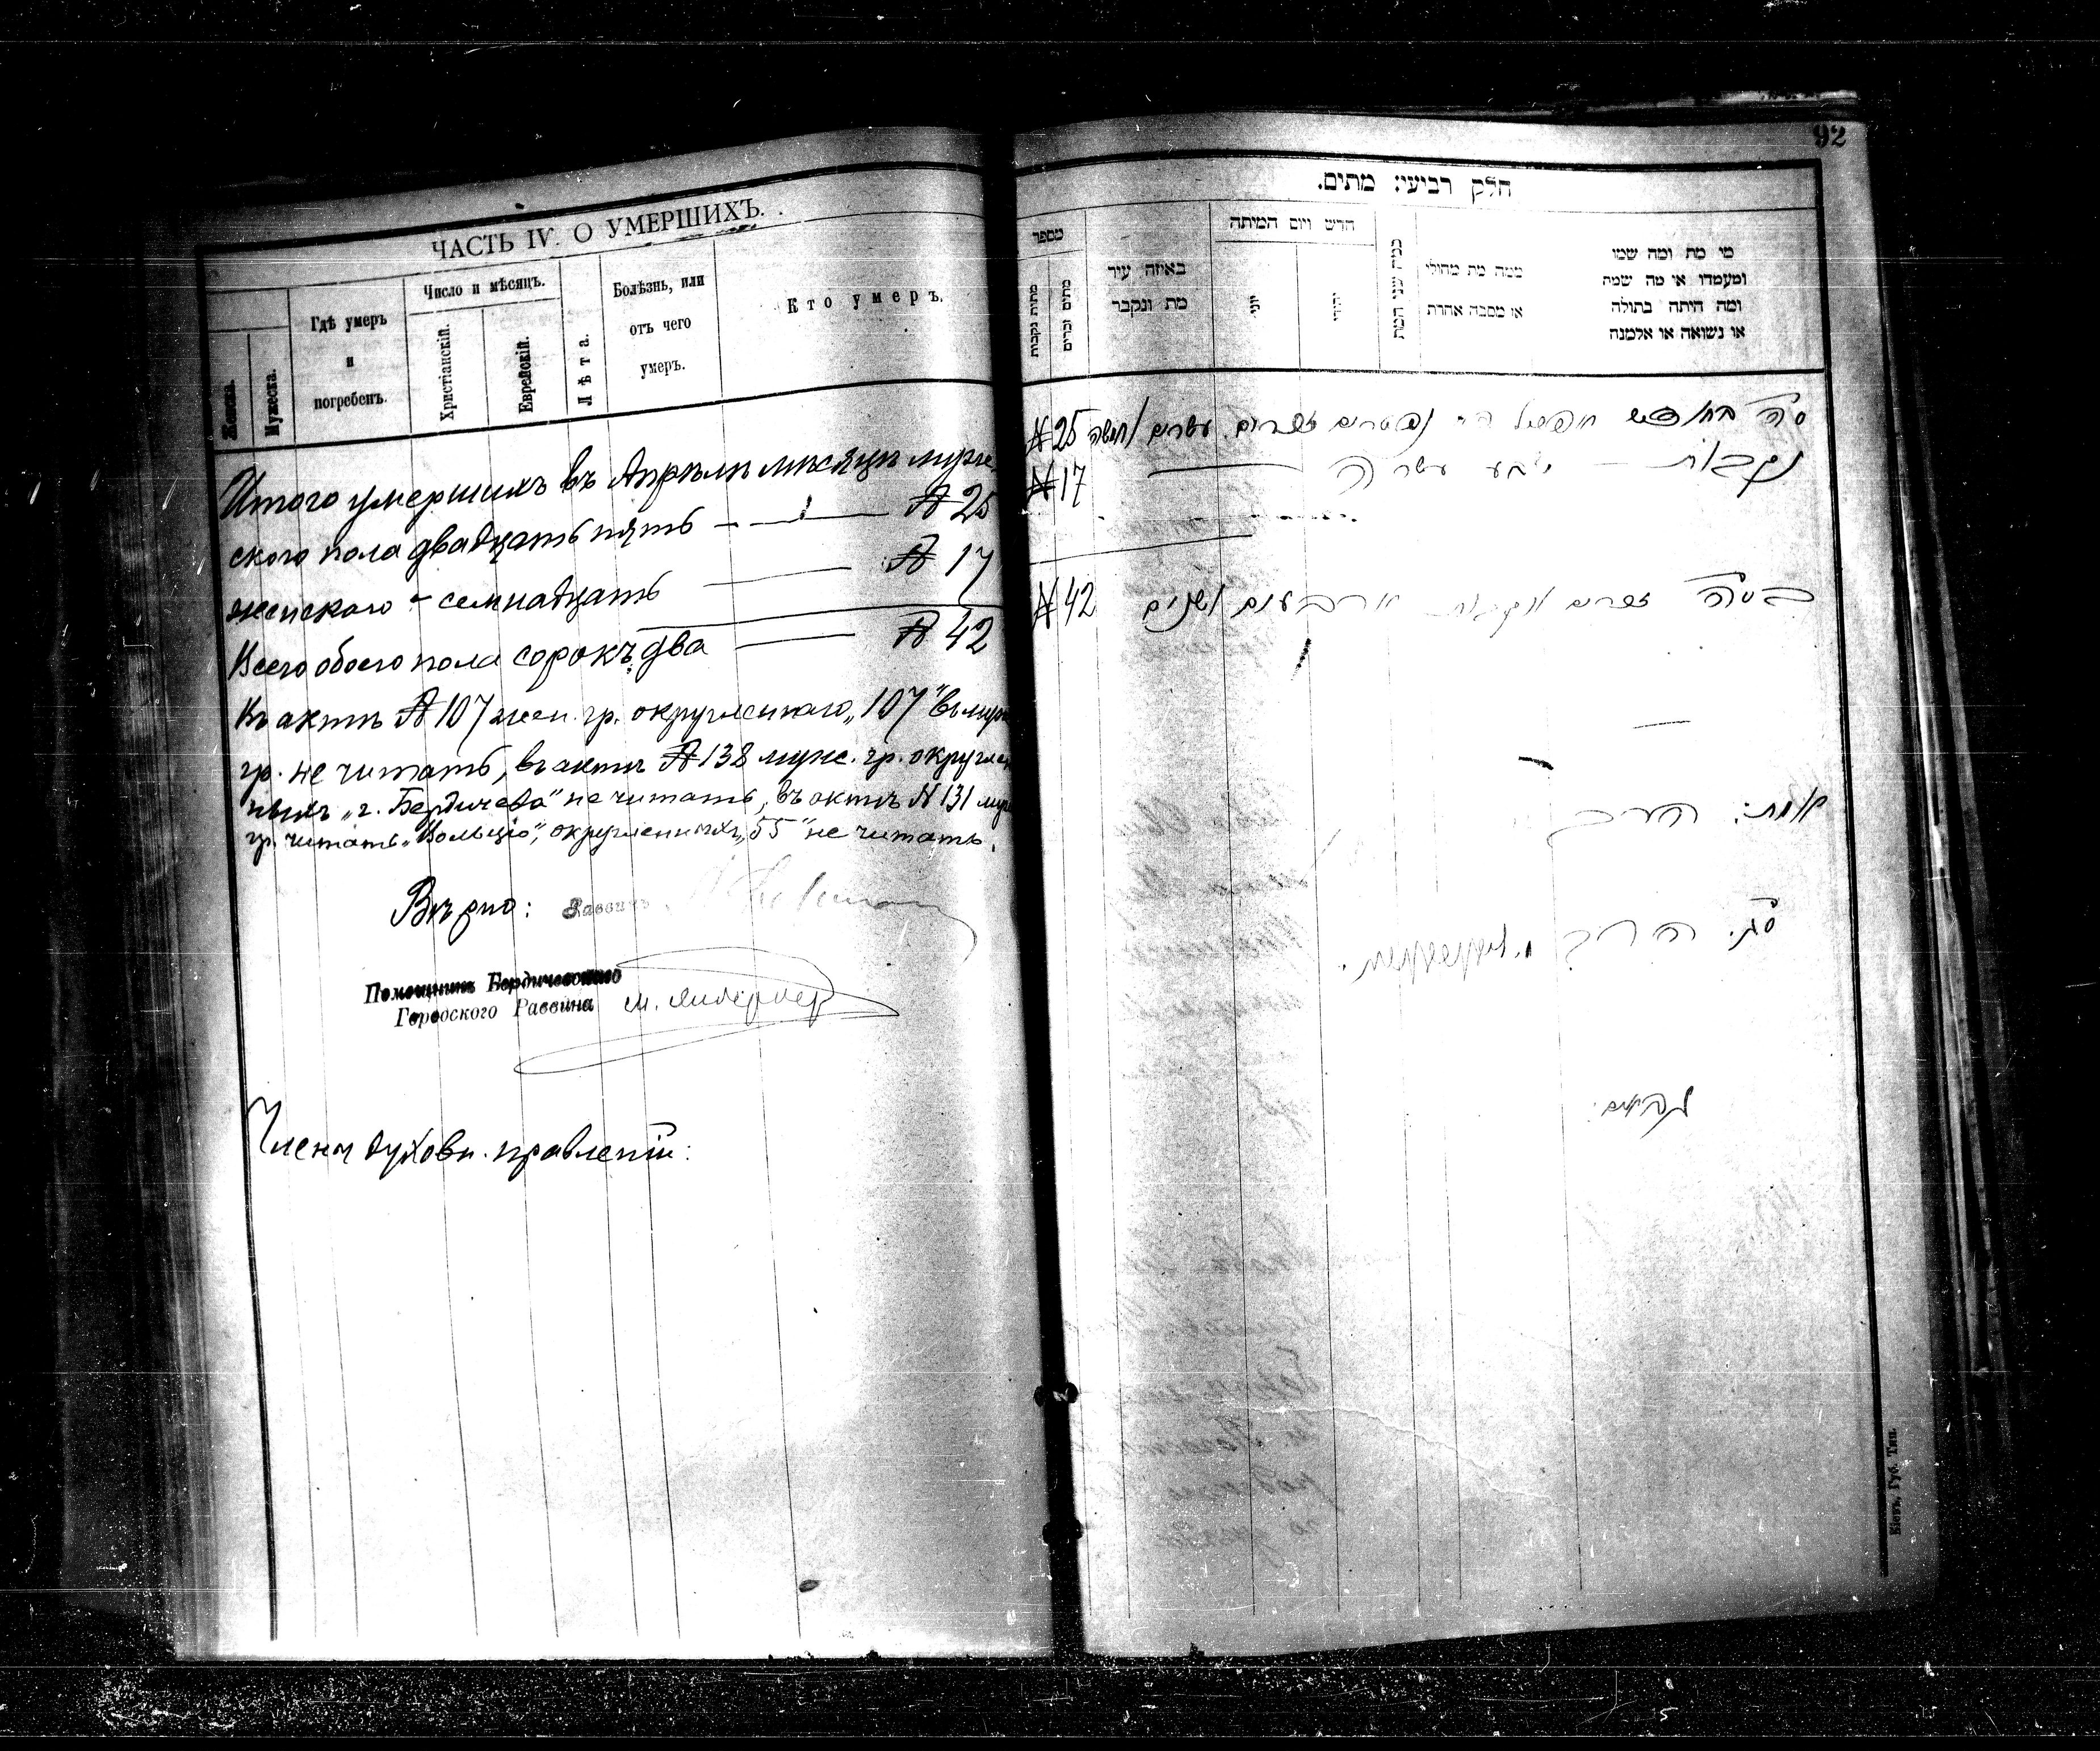 ЧАСТЬ IV. О УМЕРШИХЪ.
Женска.
Мужеска.
Гдѣ умеръ
и
погребенъ.
Число и мѣсяцъ.
Христіанскій.
Еврейскій.
Лѣта.
Болѣзнь, или
отъ чего
умеръ.
Кто умеръ.
Итого умершихъ въ Апрѣлѣ мѣсяцѣ муже
ского пола двадцать пять — № 25
женского - семнадцать — № 17
Всего обоего пола сорокъ два — № 42
Въ актѣ № 107 жен. гр. округленнаго „107" въ муж
гр. не читать, въ актѣ № 138 муж. гр. округлен
ныхъ „г. Бердичева" не читать, въ актѣ № 131 муж
гр. читать округленныхъ „55" не читать.
Вѣрно: Раввинъ
Помощникъ Бердичевскаго
Городского Раввина
Члены духовн. правленія:
92
חלק רביעי: מתים.
מספר
מתות נקבות
מתים זכרים
באיזה עיר
מת ונקבר
חדש ויום המיתה
יוני
יהודי
כמה שני המת
ממה מת מחולי
או מסבה אחרת
מי מת ומה שמו
ומעמדו או מה שמה
ומה היתה בתולה
או נשואה או אלמנה
№ 25 ס״ה בחודש זכרים עשרים וחמשה
№ 17 נקבות — שבע עשרה
№ 42 בס״ה זכרים ונקבות ארבעים ושנים
אמת: הרב
סג. הרב
גבאים:
Кіевъ, Губ. Тип.